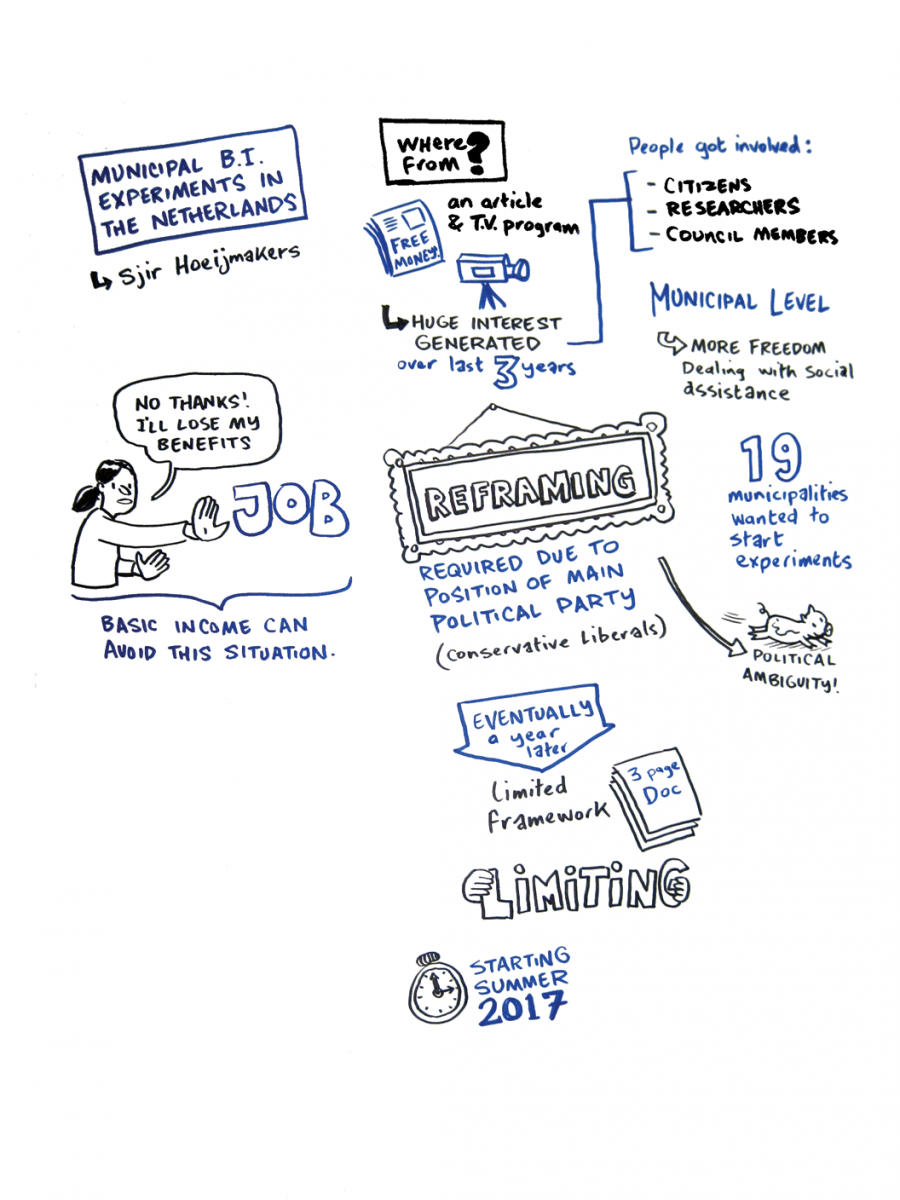 MUNICIPAL B.I.
EXPERIMENTS IN
THE NETHERLANDS
Sjir Hoeijmakers
WHERE
FROM?
an article
& T.V. program
FREE
MONEY!
HUGE INTEREST
GENERATED
over last 3 years
People got involved:
- CITIZENS
- RESEARCHERS
- COUNCIL MEMBERS
MUNICIPAL LEVEL
MORE FREEDOM
Dealing with social
assistance
NO THANKS!
I'LL LOSE MY
BENEFITS
JOB
BASIC INCOME CAN
AVOID THIS SITUATION.
REFRAMING
REQUIRED DUE TO
POSITION OF MAIN
POLITICAL PARTY
(Conservative Liberals)
19
municipalities
wanted to
start
experiments
POLITICAL
AMBIGUITY!
EVENTUALLY
a year
later
Limited
framework
3 page
Doc
LIMITING
STARTING
SUMMER
2017